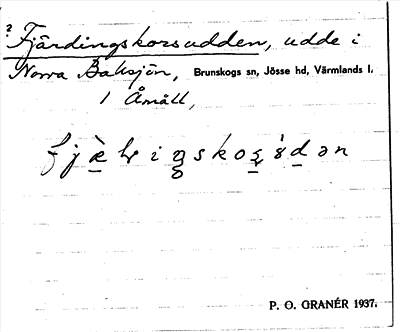 ? Fjärdingskorsudden, udde i
Norra Baksjön, Brunskogs sn, Jösse hd, Värmlands l.
1 Åmåll,
P. O. GRANÉR 1937.